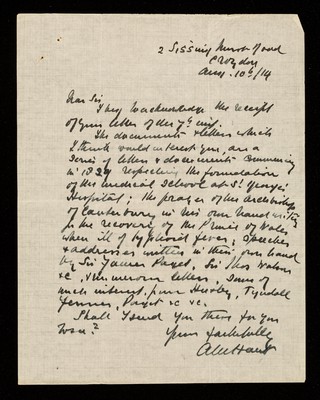 2
Croydon
Aug. 10th/14
Dear Sir
I beg to acknowledge the receipt
of your letter of the 7th inst.
The documents & letters which
I think would interest you, are a
series of letters & documents commencing
in 1829 respecting the formation
of the medical School at St. George's
Hospital; the prayer of the Archbishop
of Canterbury in his own hand writing
for the recovery of the Prince of Wales
when ill of typhoid fever; Speeches
& addresses written in their own hand
by Sir James Paget, Sir Thos Watson
&c, numerous letters, some of
much interest, from Huxley, Tyndall
Jenner, Paget &c &c.
Shall I send you these for you
to see?
Yours faithfully